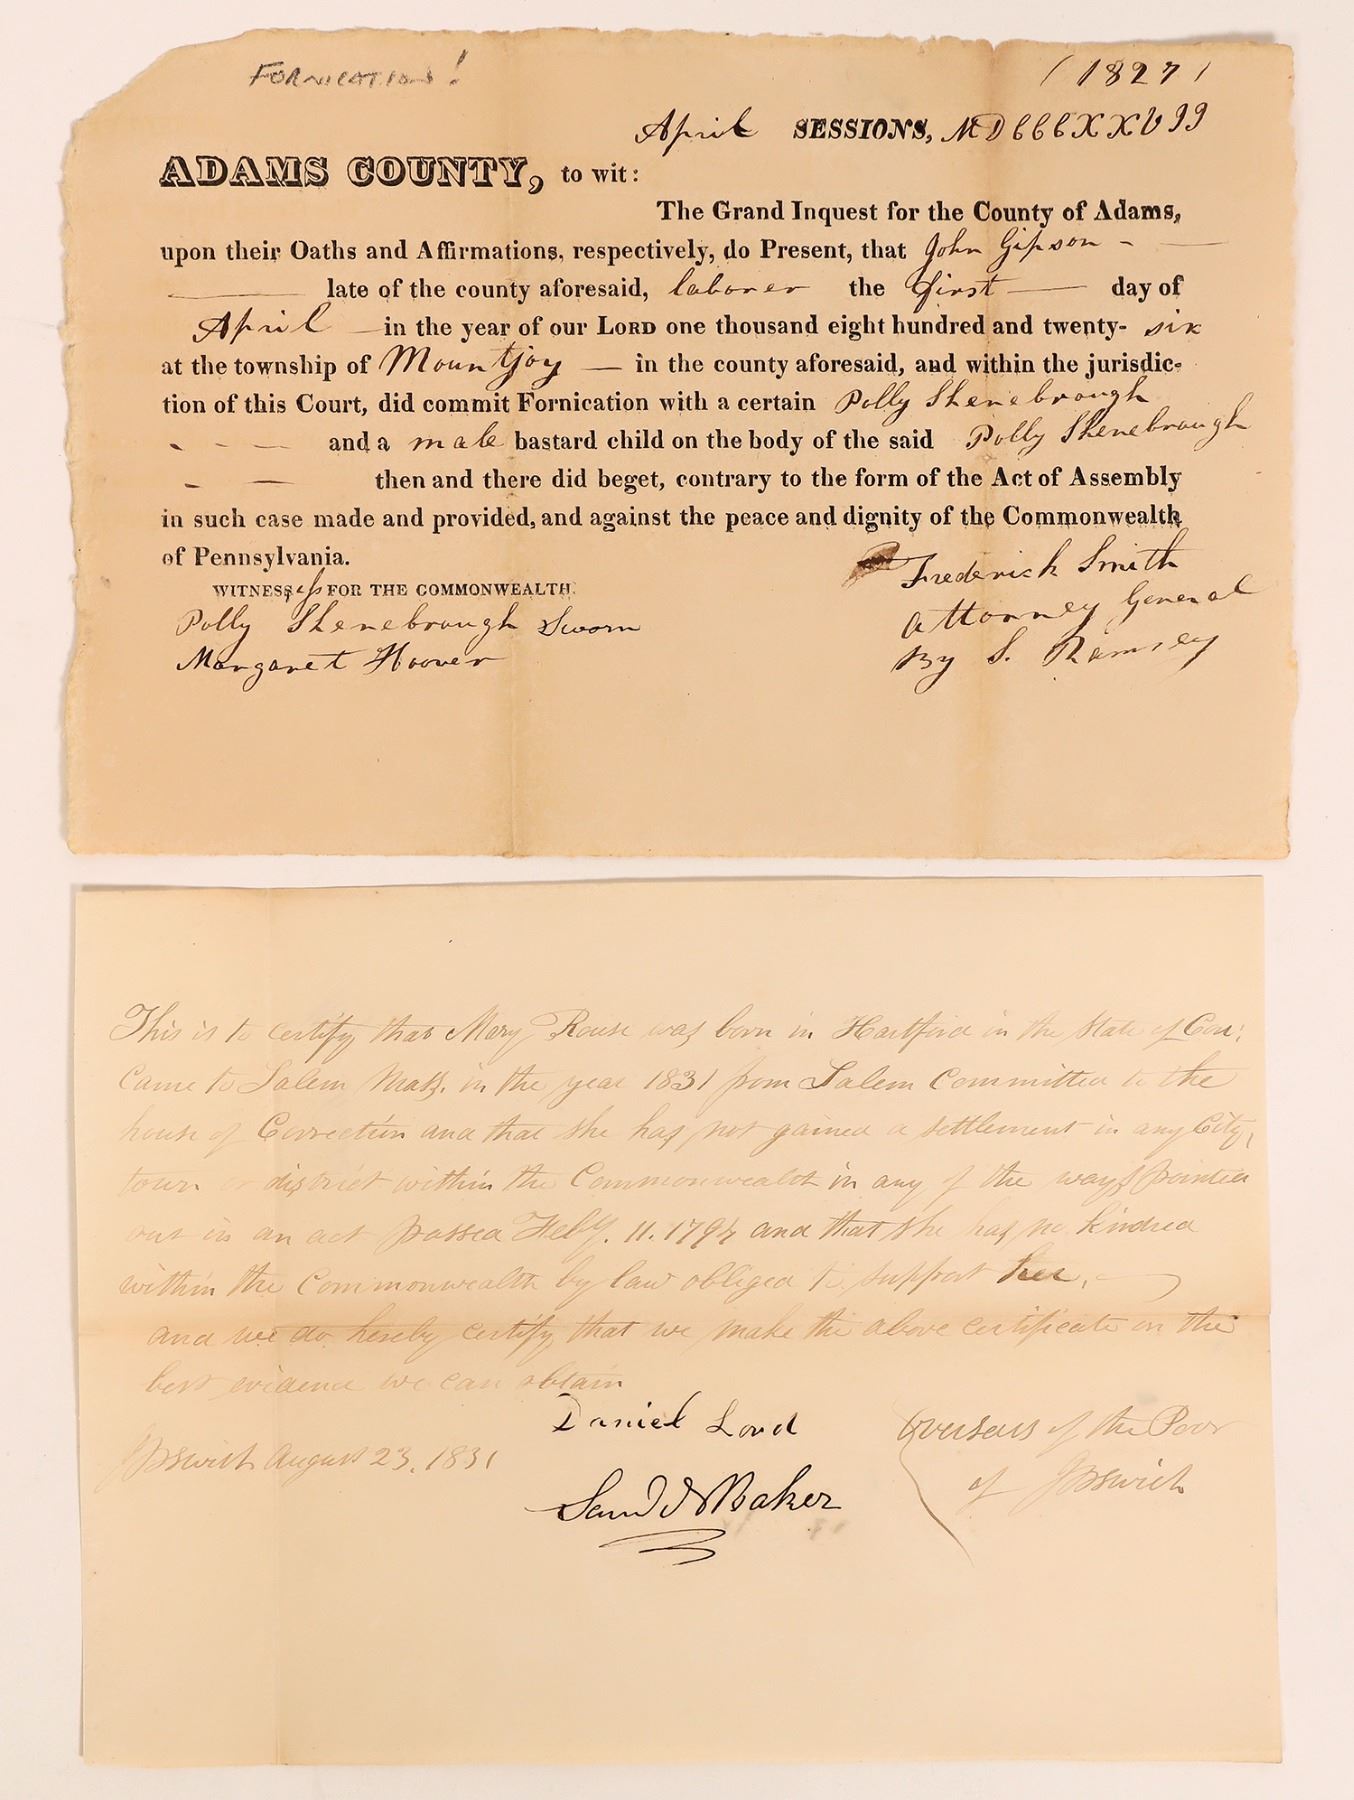 FORNICATION!
(1827)
April SESSIONS, MDCCCXXVII
ADAMS COUNTY, to wit:
The Grand Inquest for the County of Adams,
upon their Oaths and Affirmations, respectively, do Present, that John Gipson
late of the county aforesaid, laborer the first day of
April in the year of our LORD one thousand eight hundred and twenty- six
at the township of Mountjoy in the county aforesaid, and within the jurisdic-
tion of this Court, did commit Fornication with a certain Polly Shenebrough
and a male bastard child on the body of the said Polly Shenebrough
then and there did beget, contrary to the form of the Act of Assembly
in such case made and provided, and against the peace and dignity of the Commonwealth
of Pennsylvania.
WITNESSES FOR THE COMMONWEALTH.
Polly Shenebrough Sworn
Margaret Hoover
Frederick Smith
Attorney General
By S. Ramsey
This is to certify that Mary Rouse was born in Hartford in the State of Con:
Came to Salem Mass. in the year 1831 from Salem Committed to the
house of Correction and that she has not gained a settlement in any City,
town or district within the Commonwealth in any of the ways pointed
out in an act passed Feby. 11. 1794 and that she has no kindred
within the Commonwealth by law obliged to support her.
and we do hereby certify that we make the above certificate on the
best evidence we can obtain
Daniel Lord
Ipswich August 23. 1831
Saml S Baker
Overseers of the Poor
of Ipswich